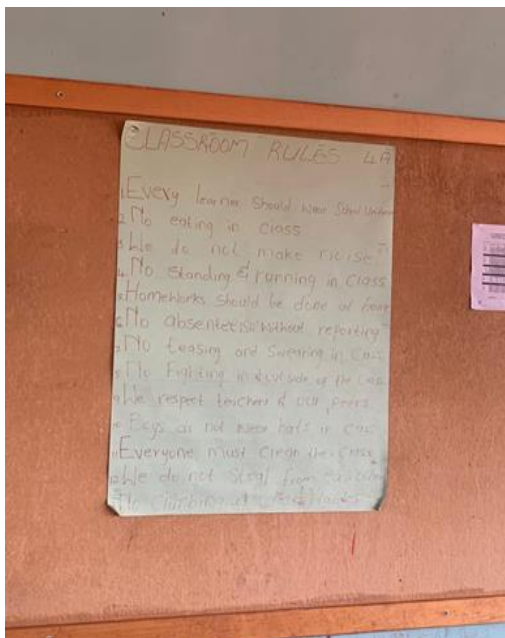 CLASSROOM RULES 4A
1. Every learner should wear School Uniform
2. No eating in class
3. We do not make noise
4. No standing & running in class
5. Homeworks should be done at home
6. No absenteeism without reporting
7. No teasing and swearing in class
8. No Fighting in & outside of the class
9. We respect teachers & our peers
10. Boys do not wear hats in class
11. Everyone must clean the class
12. We do not steal from
No